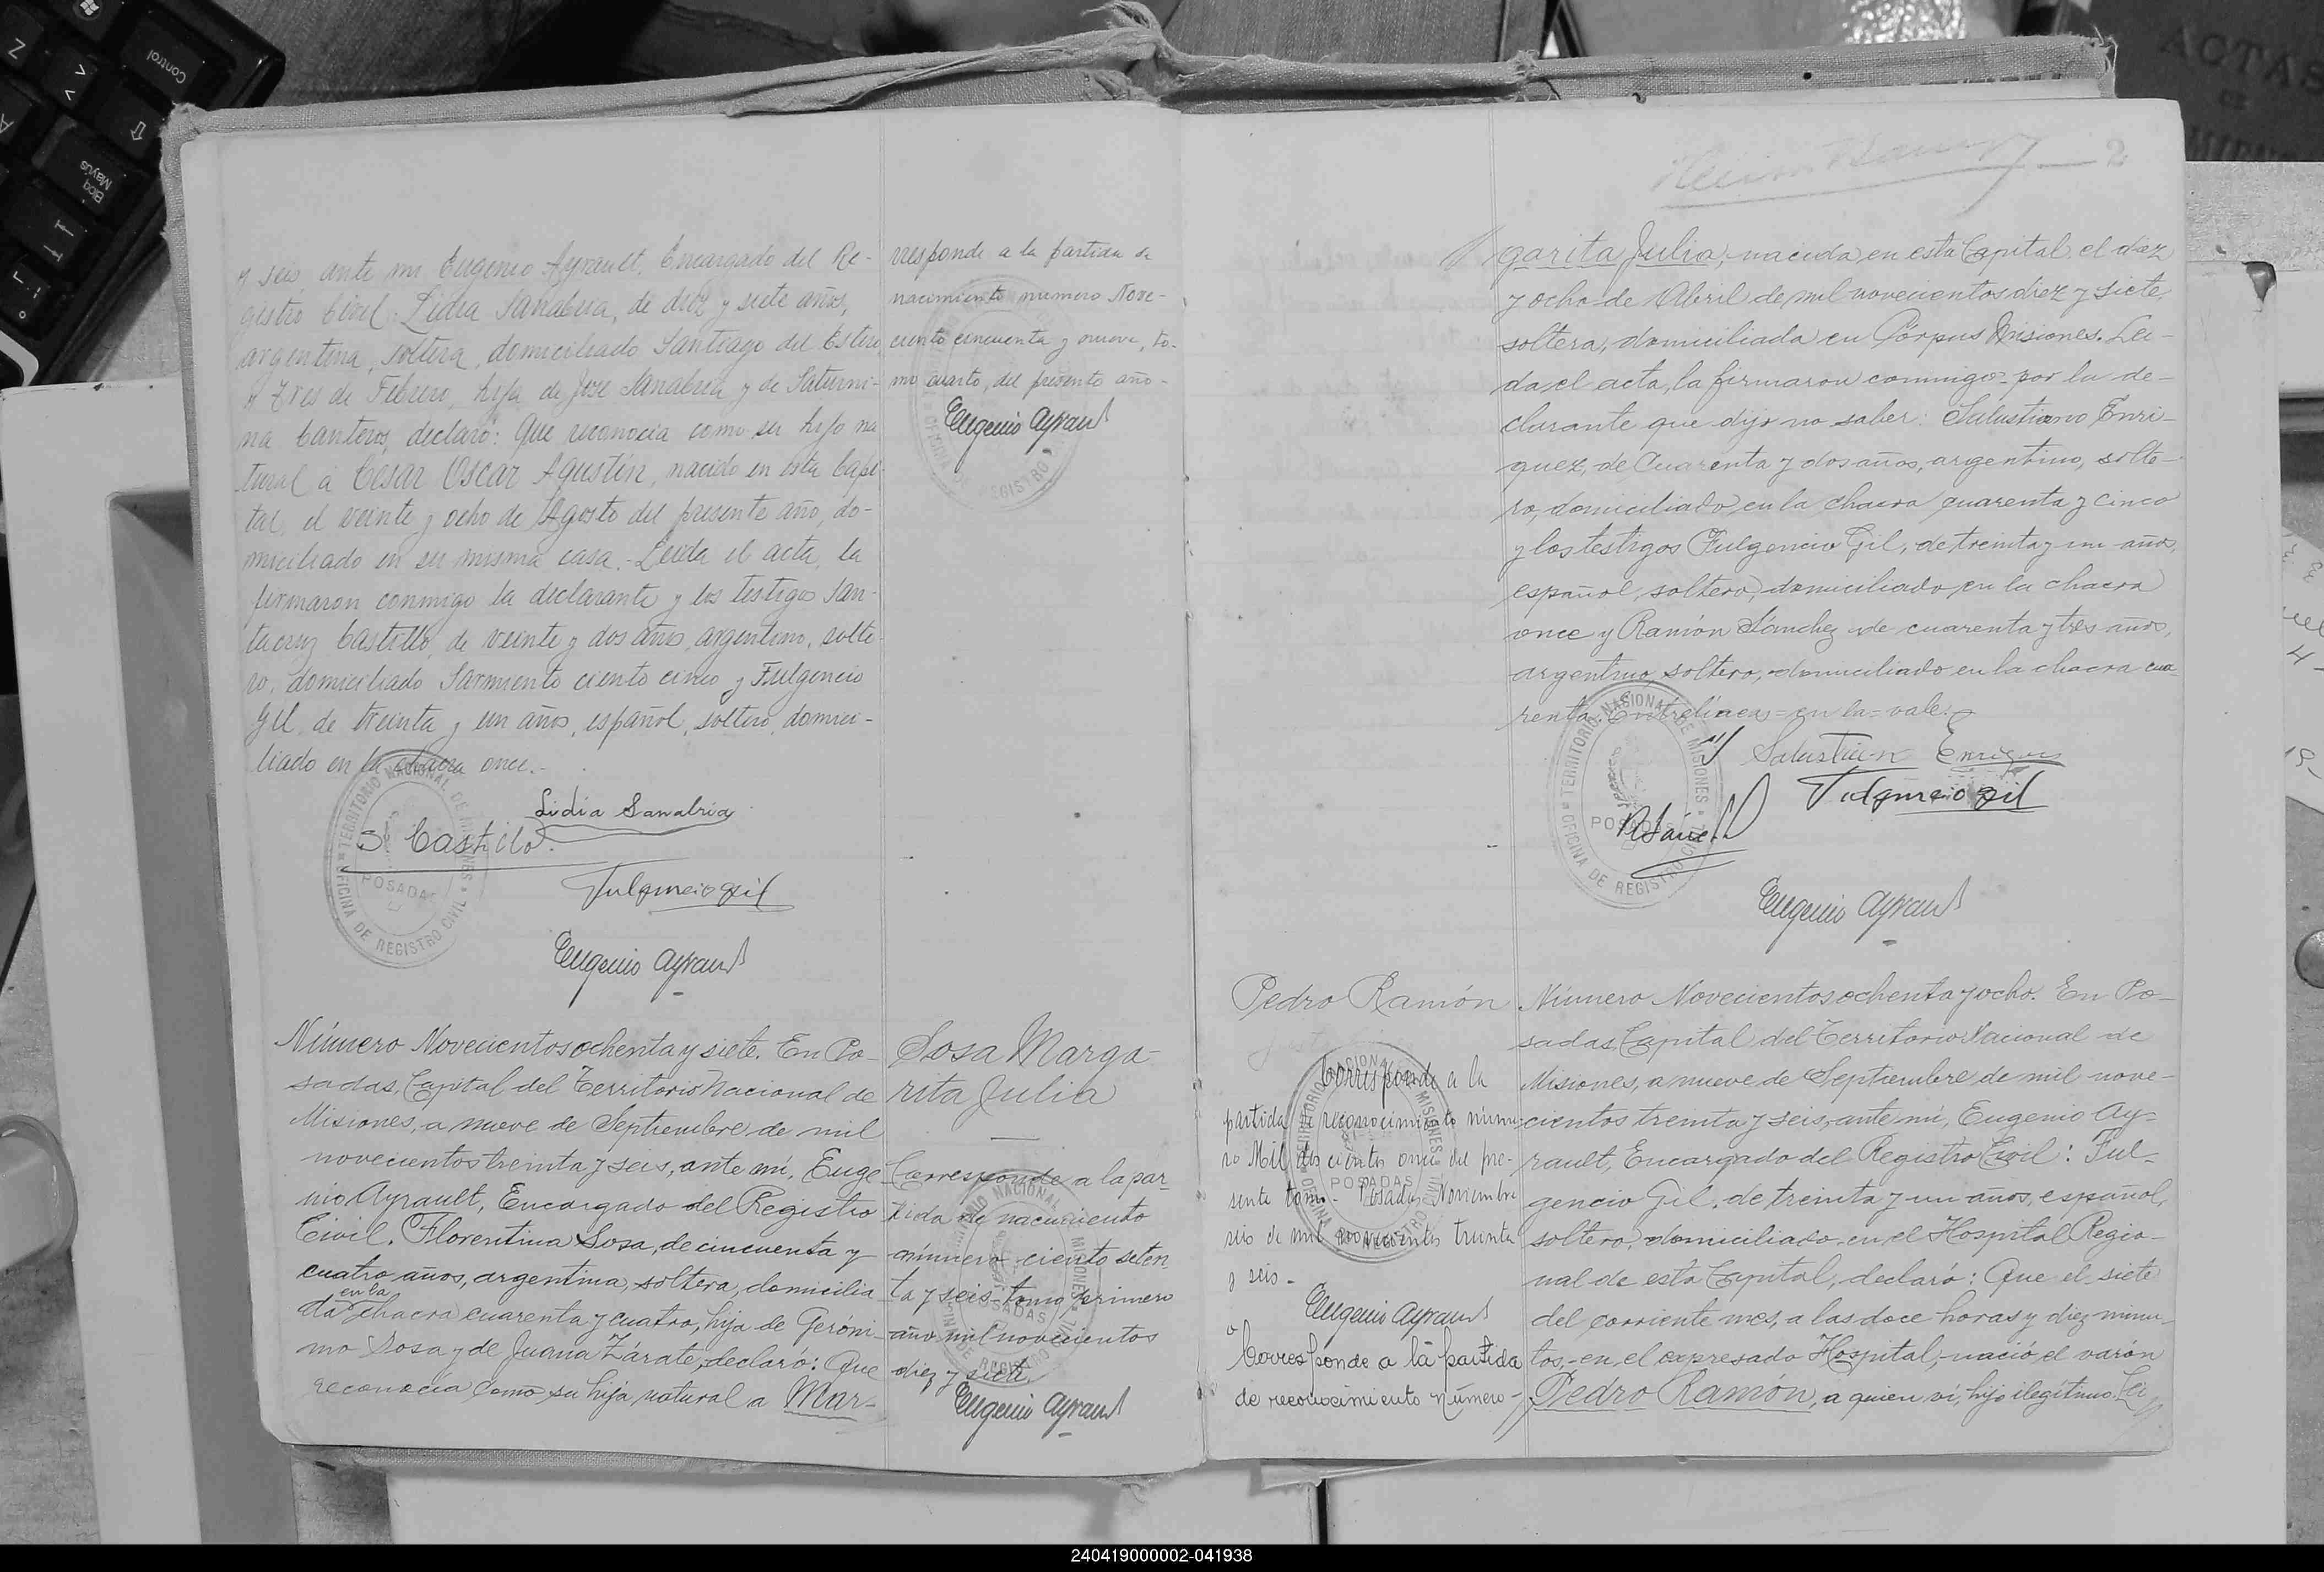 y seis, ante mi Eugenio Ayrault, Encargado del Re-
gistro Civil: Lidia Sanabria, de diez y siete años,
argentina, soltera, domiciliado Santiago del Estero
y Tres de Febrero, hija de José Sanabria y de Saturni-
na Canteros, declaró: Que reconocía como su hijo na
tural a Cesar Oscar Agustín, nacido en esta Capi-
tal, el veinte y ocho de Agosto del presente año, do-
miciliado en su misma casa.- Leida el acta, la
firmaron conmigo la declarante y los testigos San-
tacruz Castillo, de veinte y dos años, argentino, solte-
ro, domiciliado Sarmiento ciento cinco y Fulgencio
Gil, de treinta y un años, español, soltero, domici-
liado en la chacra once.-
Lidia Sanabria
S. Castillo
Fulgencio Gil
Eugenio Ayrault
TERRITORIO NACIONAL DE MISIONES
POSADAS
OFICINA DE REGISTRO CIVIL
rresponde a la partida de
nacimiento numero Nove-
ciento cincuenta y nueve, to-
mo cuarto, del presente año-
Eugenio Ayrault
Número Novecientos ochenta y siete. En Po-
sadas, Capital del Territorio Nacional de
Misiones, a nueve de Septiembre de mil
novecientos treinta y seis, ante mí, Euge-
nio Ayrault, Encargado del Registro
Civil. Florentina Sosa, de cincuenta y
cuatro años, argentina, soltera, domicilia
en la
da chacra cuarenta y cuatro, hija de Geróni-
mo Sosa y de Juana Zárate, declaró: Que
reconocía como su hija natural a Mar-
Sosa Marga-
rita Julia
Corresponde a la par-
tida de nacimiento
número ciento seten
ta y seis-tomo primero
año mil novecientos
diez y siete.
Eugenio Ayrault
2
garita Julia, nacida en esta Capital, el diez
y ocho de Abril de mil novecientos diez y siete,
soltera, domiciliada en Córpus Misiones. Lei-
da el acta, la firmaron conmigo por la de-
clarante que dijo no saber: Salustiano Enri-
quez, de Cuarenta y dos años, argentino, solte-
ro, domiciliado en la chacra cuarenta y cinco
y los testigos Fulgencio Gil, de treinta y un años,
español, soltero, domiciliado en la chacra
once y Ramón Sánchez de cuarenta y tres años,
argentino, soltero, domiciliado en la chacra cua-
renta. Entrelíneas = en la = vale.
TERRITORIO NACIONAL DE MISIONES
POSADAS
OFICINA DE REGISTRO CIVIL
Fulgencio Gil
Eugenio Ayrault
Pedro Ramón
Corresponde a la
partida de reconocimiento núme-
ro Mil doscientos once del pre-
sente tomo- Posadas, Noviembre
seis de mil novecientos treinta
y seis-
Eugenio Ayrault
Corresponde a la partida
de reconocimiento número-
Número Novecientos ochenta y ocho. En Po-
sadas, Capital del Territorio Nacional de
Misiones, a nueve de Septiembre de mil nove-
cientos treinta y seis, ante mí, Eugenio Ay-
rault, Encargado del Registro Civil: Ful-
gencio Gil, de treinta y un años, español,
soltero, domiciliado en el Hospital Regio-
nal de esta Capital, declaró: Que el siete
del corriente mes, a las doce horas y diez minu-
tos,-en el expresado Hospital,-nació el varón
Pedro Ramón, a quien ví, hijo ilegítimo. Lei
240419000002-041938